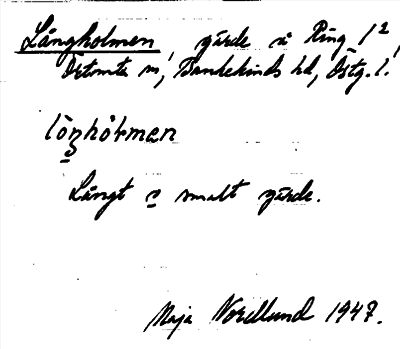 Långholmen, gärde å Ring 1²,
Örtomta sn, Bankekinds hd, Östg. l.
löŋhòrmen
Långt o smalt gärde.
Maja Nordlund 1947.